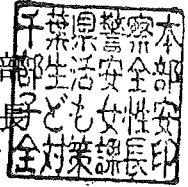 千葉県警察本
部生活安全部
子ども女性安
全対策課長印